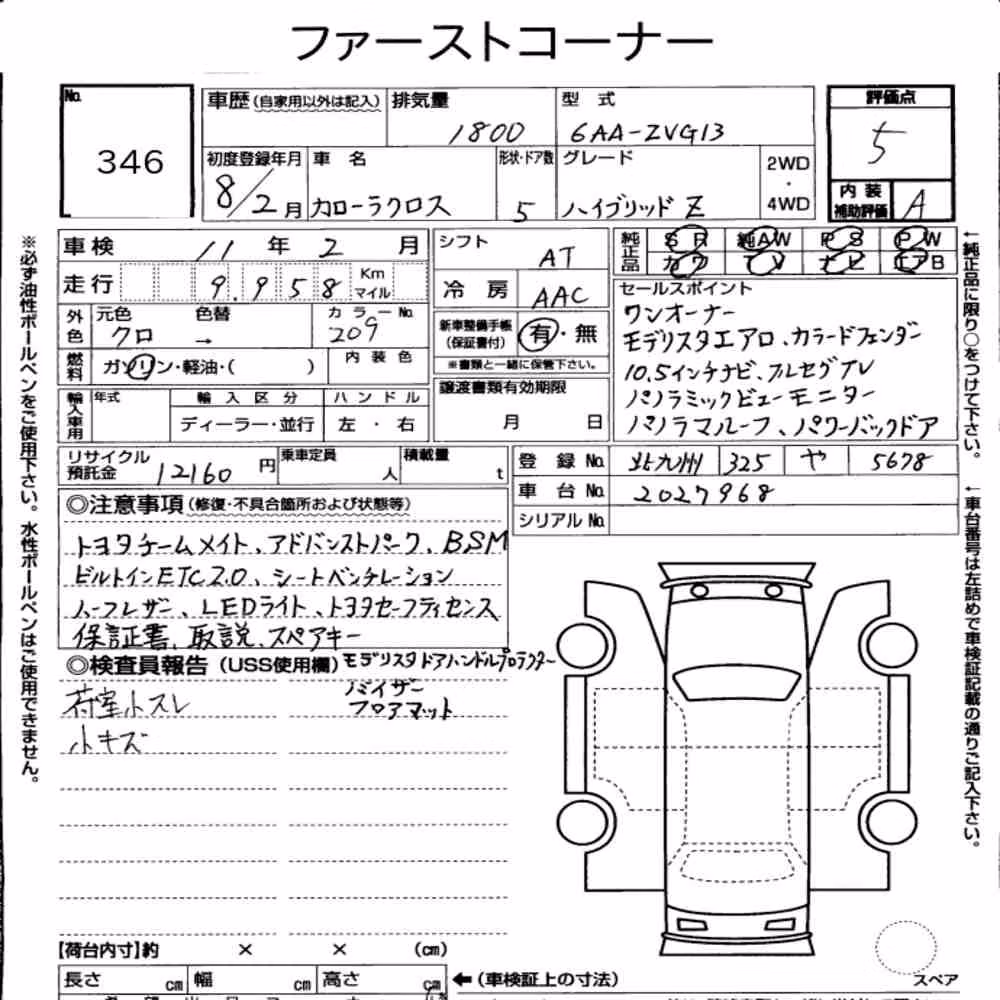 ファーストコーナー
No. 346
車歴(自家用以外は記入)
排気量 1800
型 式 6AA-ZVG13
評価点 5
内装補助評価 A
初度登録年月 8/2月
車 名 カローラクロス
形状・ドア数 5
グレード ハイブリッド Z
2WD・4WD
車検 11 年 2 月
走行 9.958 Km マイル
シフト AT
冷房 AAC
純正品 SR 純AW PS PW
カワ TV ナビ エアB
外色 元色 クロ 色替 → カラーNo. 209
燃料 ガソリン・軽油・( ) 内装色
新車整備手帳(保証書付) 有・無
※書類と一緒に保管下さい。
セールスポイント
ワンオーナー
モデリスタエアロ、カラードフェンダー
10.5インチナビ、フルセグTV
パノラミックビューモニター
パノラマルーフ、パワーバックドア
輸入車用 年式 輸入区分 ハンドル
ディーラー・並行 左・右
譲渡書類有効期限
月 日
リサイクル預託金 12160 円
乗車定員 人
積載量 t
登録No. 北九州 325 や 5678
車台No. 2027968
シリアルNo.
◎注意事項(修復・不具合箇所および状態等)
トヨタチームメイト、アドバンストパーク、BSM
ビルトインETC2.0、シートベンチレーション
ハーフレザー、LEDライト、トヨタセーフティセンス
保証書、取説、スペアキー
◎検査員報告(USS使用欄)
モデリスタドアハンドルプロテクター
バイザー
フロアマット
荷室小スレ
小キズ
【荷台内寸】約 × × (cm)
長さ cm 幅 cm 高さ cm
←(車検証上の寸法)
スペア
※必ず油性ボールペンをご使用下さい。水性ボールペンはご使用できません。
←純正品に限り○をつけて下さい。
←車台番号は左詰めで車検証記載の通りご記入下さい。